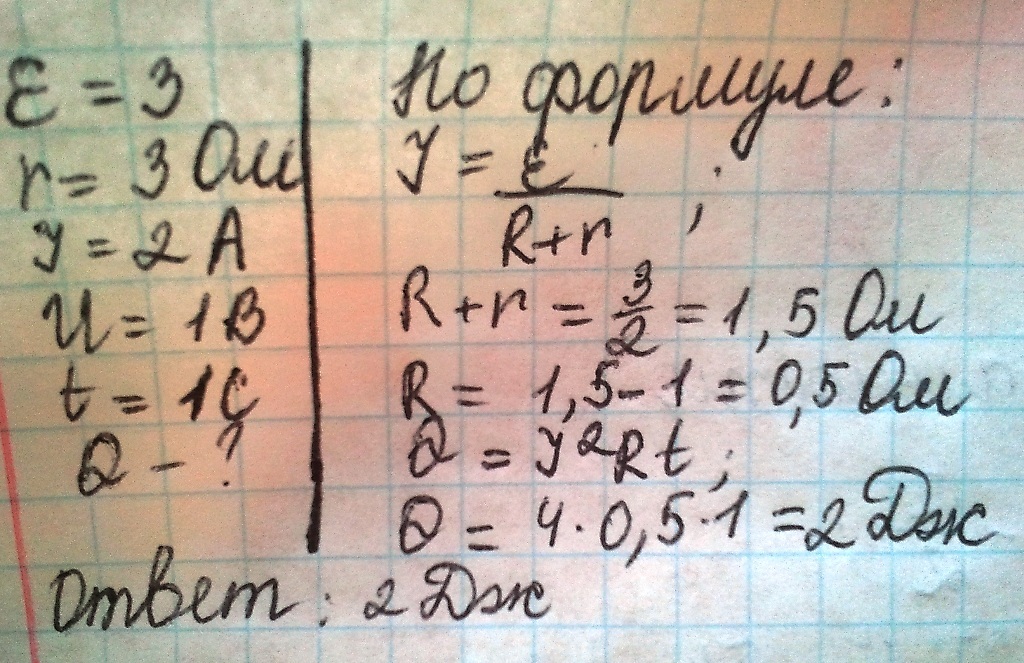 ε = 3
r = 3 Ом
У = 2 А
U = 1В
t = 1С
Q - ?
По формуле:
У = ε / R+r ;
R+r = 3/2 = 1,5 Ом
R = 1,5 - 1 = 0,5 Ом
Q = У²Rt;
Q = 4·0,5·1 = 2 Дж
Ответ: 2 Дж